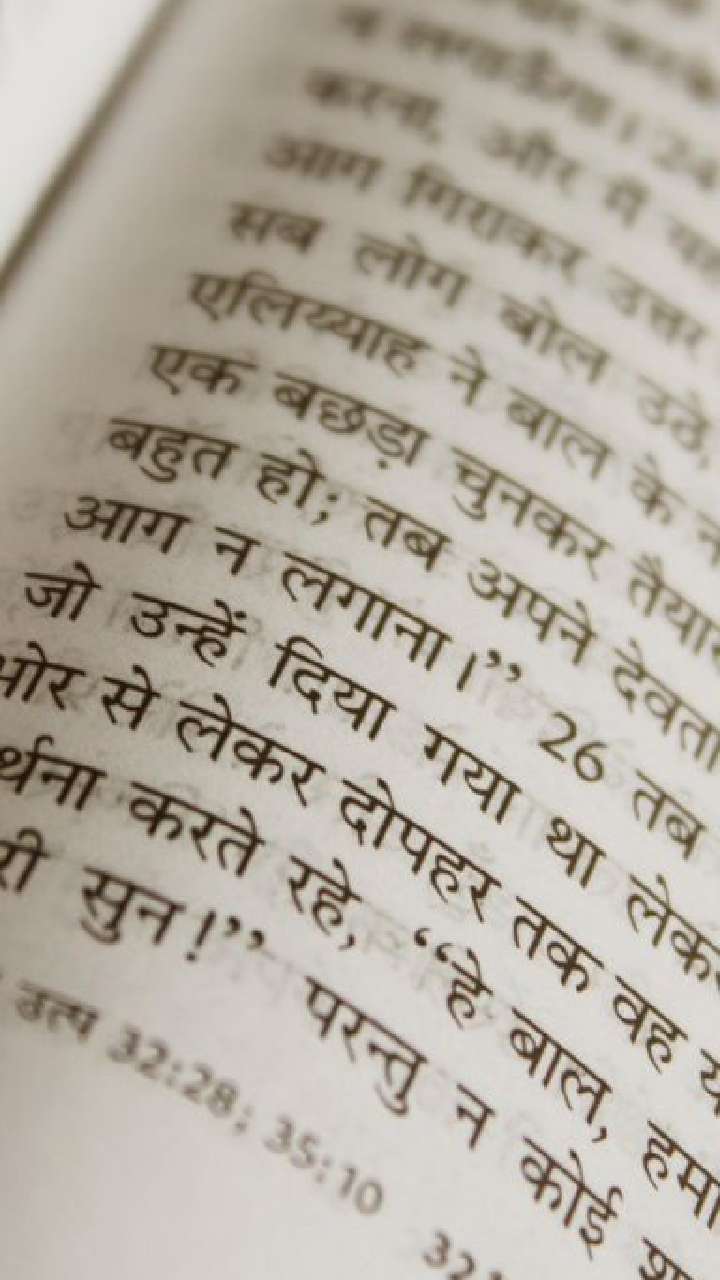 न लगाऊँगा। 24
करना, और मैं यह
आग गिराकर उत्तर
सब लोग बोल उठे,
एलिय्याह ने बाल के
एक बछड़ा चुनकर तैयार
बहुत हो; तब अपने देवता
आग न लगाना।” 26 तब
जो उन्हें दिया गया था लेकर
ओर से लेकर दोपहर तक वह
र्थना करते रहे, “हे बाल, हमा
री सुन!” परन्तु न कोई
उत्प 32:28; 35:10